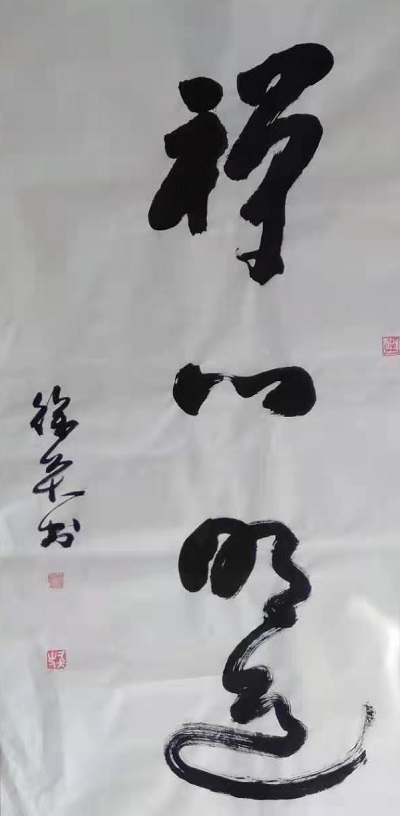 禅心明道
徐英书